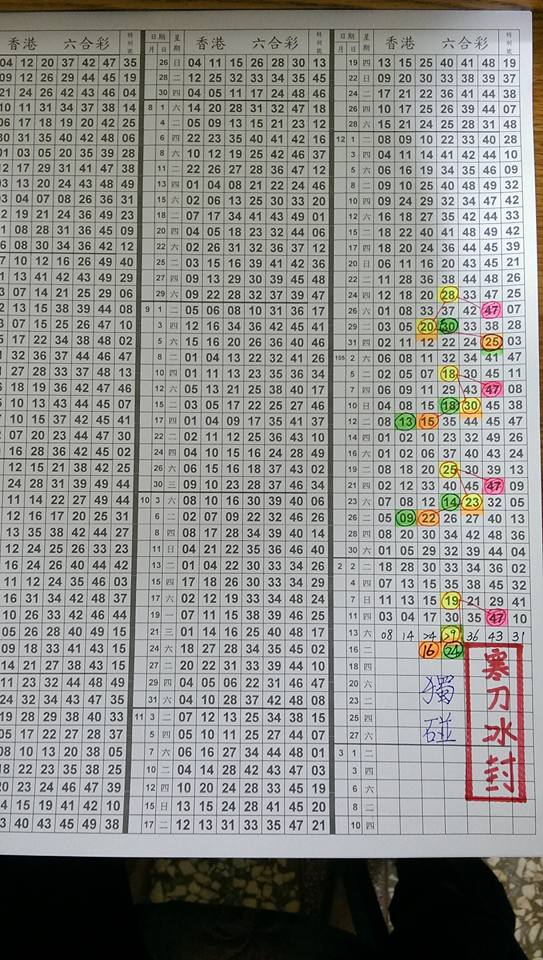 香港 六合彩 特別號
04 12 20 37 42 47 35
09 12 26 29 44 45 19
21 26 42 43 46 04
10 11 31 34 37 38 14
06 17 18 19 20 42 25
30 31 35 40 42 48 06
01 03 05 20 35 39 28
12 17 29 31 41 47 38
13 20 24 43 48 49
03 04 07 08 26 36 31
19 21 24 36 49 23
08 28 31 36 45 09
08 30 34 36 42 12
10 12 16 26 49 40
13 41 42 43 49 29
07 14 21 25 29 06
07 15 25 26 47 10
17 22 34 38 48 02
32 36 37 44 46 47
28 33 37 48 13
18 19 36 42 47 46
10 15 37 42 45 41
07 20 23 44 47 30
16 28 36 42 45 02
12 15 21 38 42 25
24 28 31 39 49 44
11 14 22 27 49 44
12 16 17 20 25 31
13 35 38 42 44 27
12 24 25 26 33 23
16 24 26 40 44 42
11 12 24 35 46 03
16 31 34 42 48 37
10 26 33 42 46 44
05 26 28 40 49 15
09 18 33 41 43 15
14 21 27 38 43 15
11 23 32 44 48 49
24 34 43 47 35
19 28 29 38 40 33
05 17 22 27 28 37
08 10 13 20 38 05
18 22 23 35 38 25
20 23 24 46 49 37
14 15 19 41 42 10
13 40 43 45 49 38
日期 星期 香港 六合彩 特別號
月 日
26 日 04 11 15 26 28 30 13
28 二 12 25 32 33 34 35 45
30 四 04 05 11 17 24 48 46
8 1 六 14 20 28 31 32 47 18
4 二 05 09 13 15 21 23 12
6 四 22 23 35 40 41 42 16
8 六 10 12 19 25 42 46 37
11 22 26 27 28 36 47 12
13 四 01 04 08 21 22 24 46
15 六 02 06 13 25 30 33 20
18 二 07 17 34 41 43 49 01
20 四 04 05 18 23 32 44 06
22 六 02 26 31 32 36 37 12
25 二 03 15 16 39 41 42 36
27 四 09 13 29 30 39 45 48
29 六 09 22 28 32 37 39 47
9 1 二 05 06 08 10 31 36 17
3 四 12 16 34 36 42 45 29
5 六 04 12 13 15 32 42 03
8 二 01 04 13 22 32 41 26
10 四 01 11 13 23 35 36 34
12 六 05 13 21 25 38 40 17
15 二 03 05 17 22 25 27 46
17 四 01 04 09 17 35 41 37
22 二 02 11 12 25 36 43 10
24 四 04 10 15 16 24 28 49
26 六 06 15 16 18 37 43 02
30 三 09 10 23 28 36 67 34
10 3 六 08 10 16 30 39 40 06
6 二 02 07 09 22 32 46 26
8 四 08 17 28 34 39 40 14
11 日 04 21 22 35 36 46 40
13 二 01 04 22 26 33 34 46
15 四 17 18 26 30 33 34 29
17 六 02 12 33 49 34 18 24
19 一 07 11 15 38 39 46 25
21 三 01 14 16 25 40 48 17
24 六 18 27 28 34 35 45 02
27 二 20 22 31 33 39 49 34
29 四 04 05 06 22 31 46 47
31 六 04 10 28 37 42 48 08
11 3 二 07 12 13 25 34 38 15
5 四 05 10 11 25 27 44 07
7 六 06 16 27 34 44 48 01
10 二 04 14 28 42 43 47 03
12 四 10 20 24 28 35 48 13
15 日 13 15 24 28 41 45 20
17 二 12 13 31 33 35 47 21
日期 星期 香港 六合彩 特別號
月 日
19 四 13 15 25 40 41 48 19
22 日 09 20 30 32 38 39 37
24 二 17 21 22 36 41 44 38
26 四 10 17 25 26 39 44 07
28 六 15 21 24 25 28 31 48
12 1 二 08 09 10 22 33 40 28
3 四 04 11 14 41 42 44 10
5 六 06 16 19 34 35 46 09
8 二 09 10 25 40 48 49 32
10 四 09 24 29 32 34 47 42
12 六 16 18 27 35 42 44 33
15 二 18 22 40 41 48 49 17
17 四 18 20 24 36 44 45 39
20 日 06 11 16 20 43 45 21
22 二 11 28 36 38 44 48 26
24 四 12 18 20 28 33 47 25
26 六 01 08 33 37 42 47 07
29 二 03 05 20 30 33 38 28
31 四 02 11 12 22 24 25 03
105 2 六 06 08 11 32 34 41 47
5 二 02 05 07 18 30 45 11
7 四 06 09 11 29 43 47 08
10 日 04 08 15 18 30 45 38
12 二 08 13 15 35 44 45 47
14 四 01 02 10 23 32 49 26
16 六 01 02 06 37 40 43 49
19 二 08 18 20 25 30 39 13
21 四 02 12 33 40 43 47 09
23 六 07 08 12 14 23 32 05
26 二 05 09 22 26 27 40 13
28 四 08 20 30 34 42 48 36
30 六 01 05 29 32 39 44 04
2 2 二 18 28 30 33 34 36 02
4 四 07 13 15 35 38 45 32
7 日 11 13 15 19 21 29 41
11 四 03 04 17 30 35 47 10
13 六 08 14 24 29 36 43 31
16 二 16 24
18 四
20 六
23 二
25 四
27 六
3 1 二
3 四
6 六
8 二
10 四
獨碰
寒刀冰封